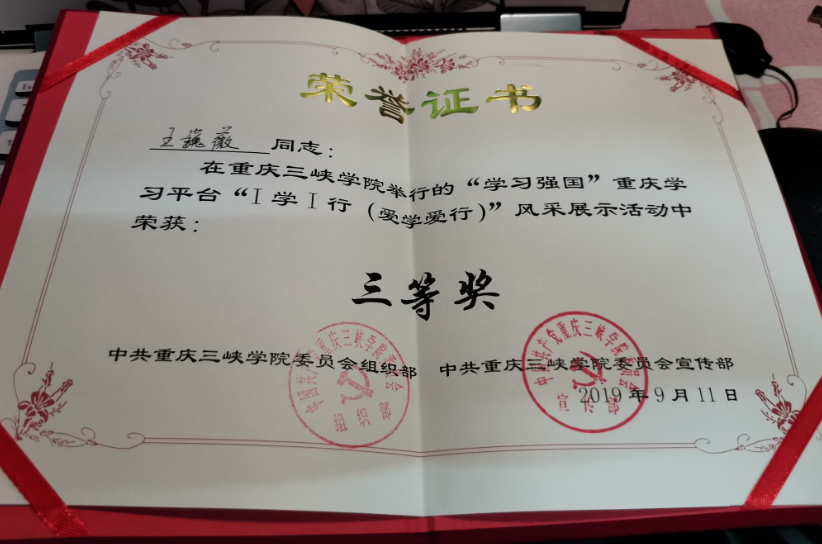 荣誉证书
王巍薇 同志：
在重庆三峡学院举行的“学习强国”重庆学
习平台“I 学 I 行（爱学爱行）”风采展示活动中
荣获：
三等奖
中共重庆三峡学院委员会组织部 中共重庆三峡学院委员会宣传部
2019 年 9 月 11 日
中国共产党重庆三峡学院委员会
组织部
中国共产党重庆三峡学院委员会
宣传部